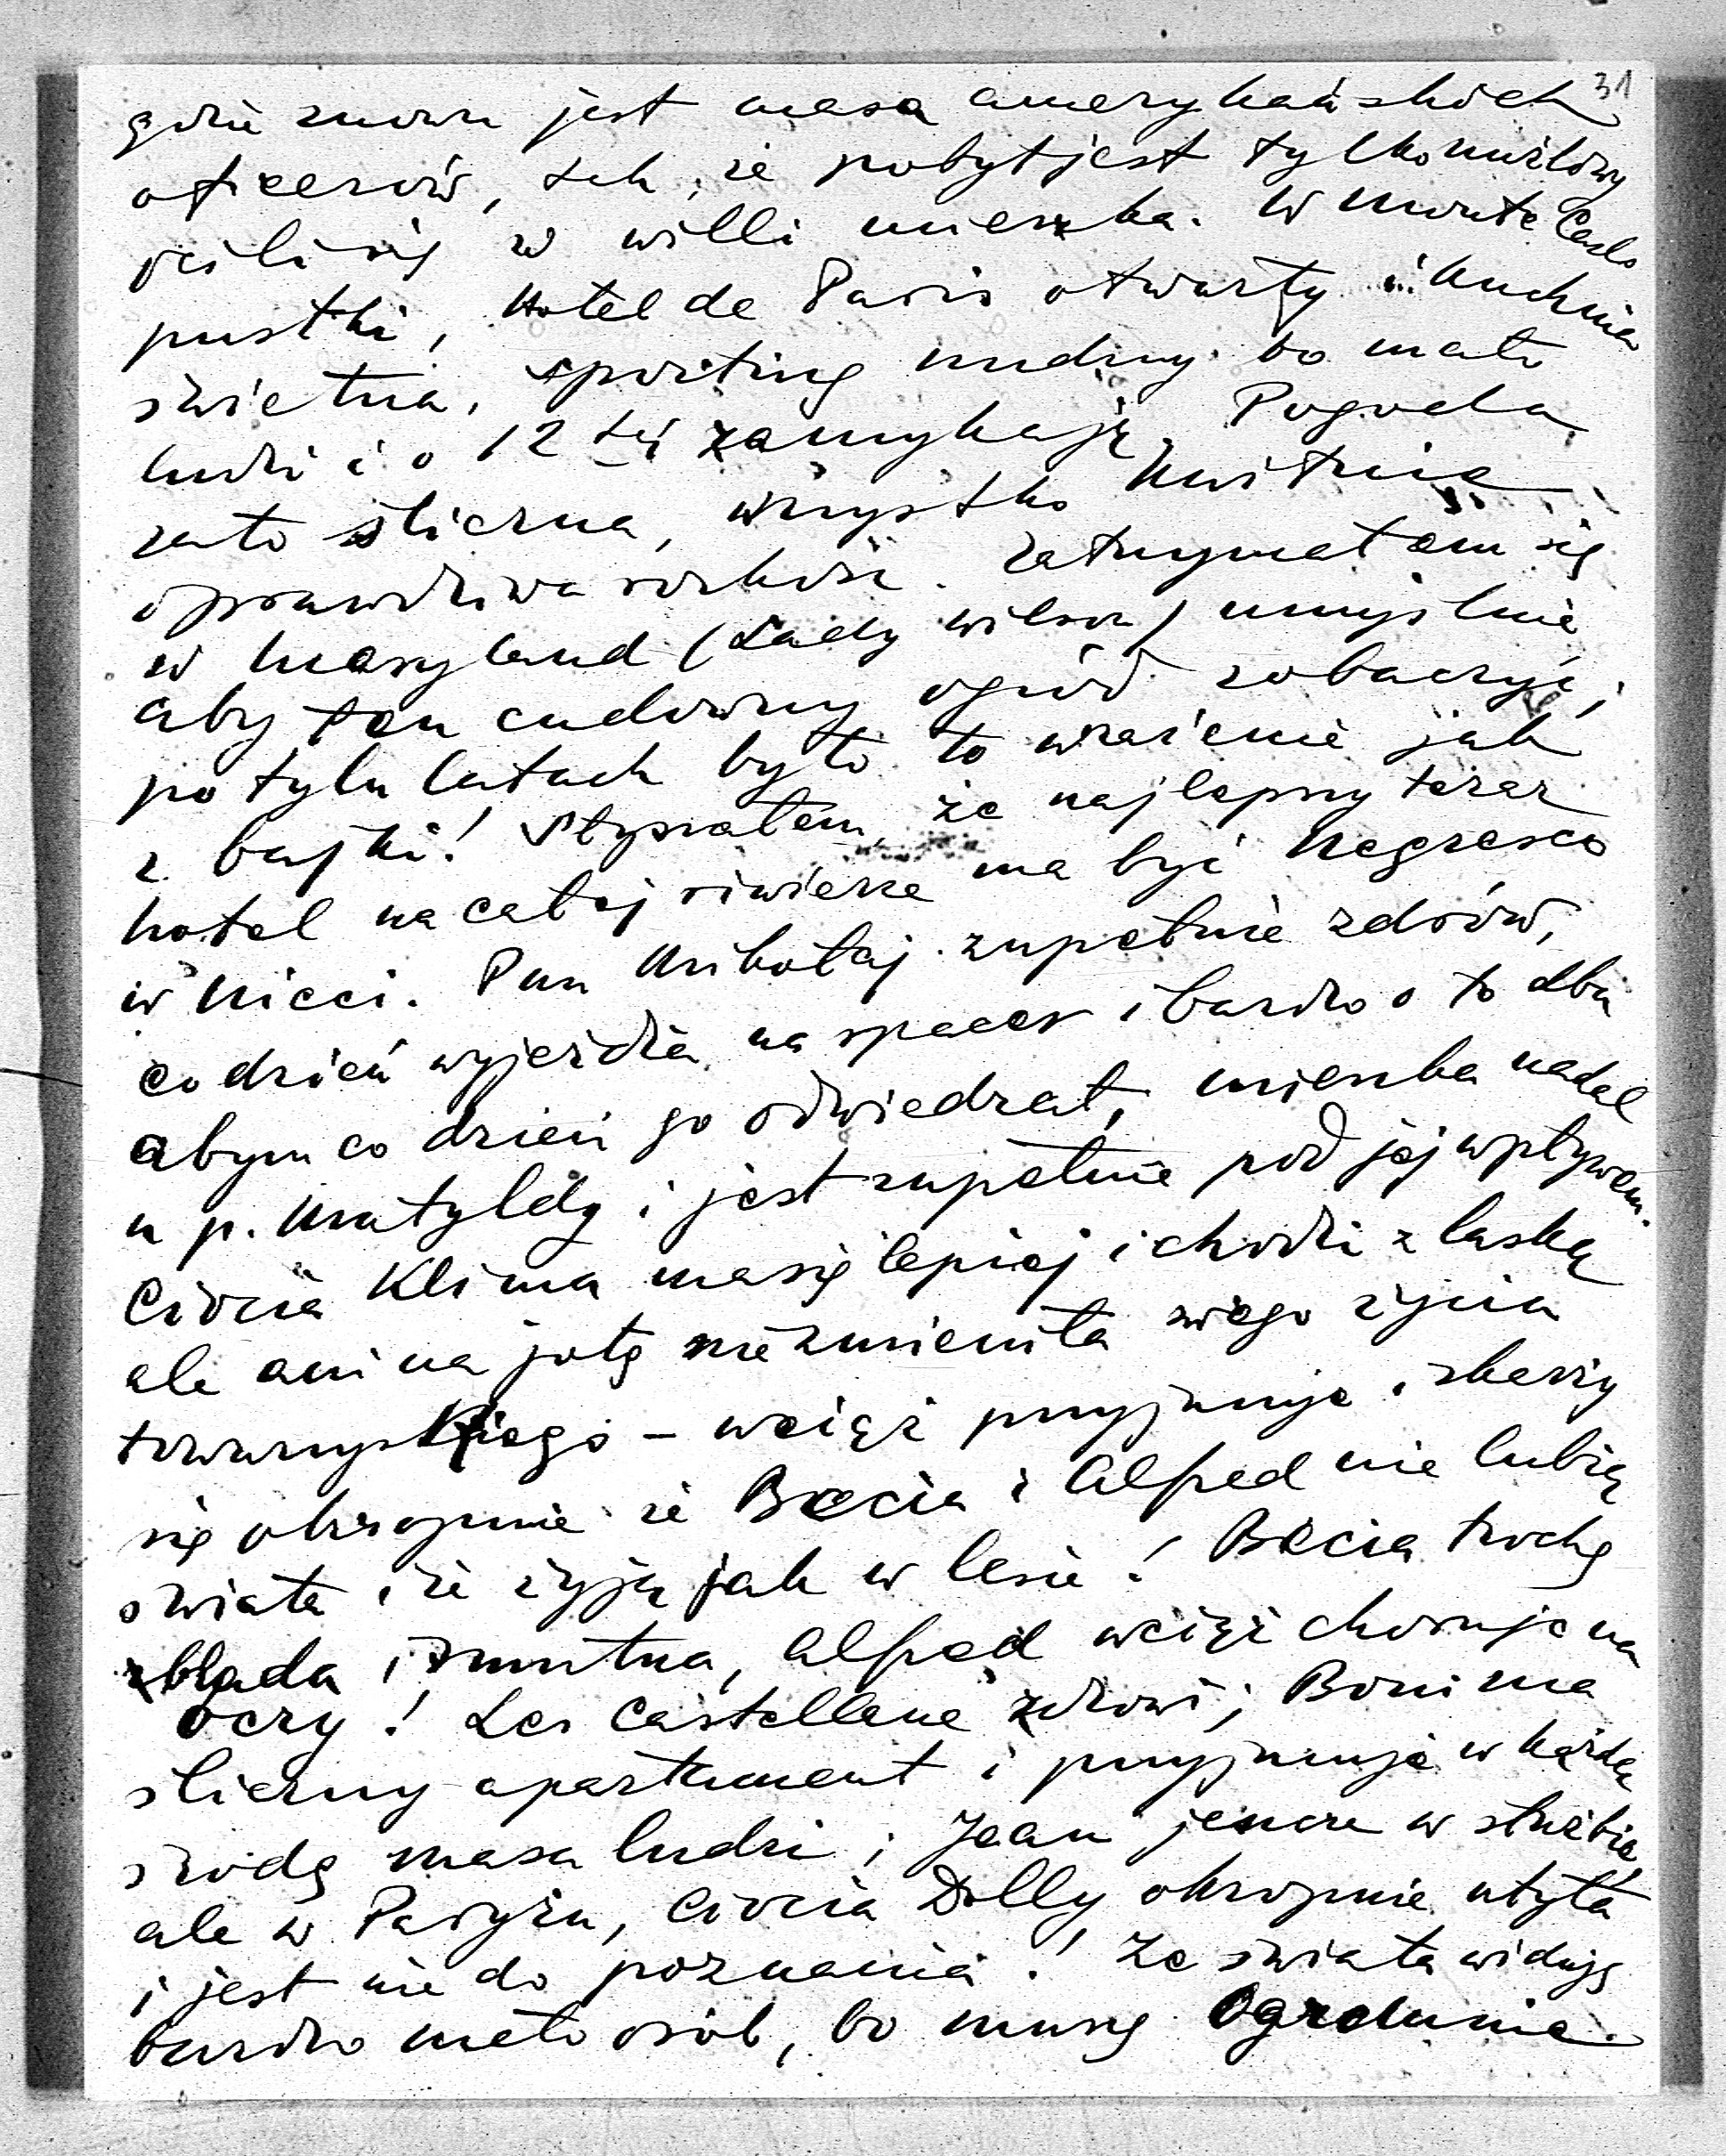 31
gdzie znowu jest masa amerykańskich
oficerów, tak, że pobyt jest tylko możliwy
jeśli się w willi mieszka. W Monte Carlo
pustki, Hotel de Paris otwarty i kuchnia
świetna, sporting nudny bo mało
ludzi i o 12 tej zamykają. Pogoda
zato śliczna, wszystko kwitnie
prawdziwa rozkosz. Zatrzymałem się
w Maryland (Lady Wilson) umyślnie
aby ten cudowny ogród zobaczyć,
po tylu latach było to wrażenie jak
z bajki! Słyszałem, że najlepszy teraz
hotel na całej riwierze ma być Negresco
w Nicei. Pan Mikołaj zupełnie zdrów,
codzień wyjeżdża na spacer i bardzo o to dba
abym co dzień go odwiedzał, mieszka nadal
u p. Matyldy i jest zupełnie pod jej wpływem.
Ciocia Klima ma się lepiej i chodzi z laską
ale ani na jotę nie zmieniła swego życia
towarzyskiego – wciąż przyjmuje i skarży
się okropnie że Bicia i Alfred nie lubią
świata i że żyją jak w lesie! Bicia trochę
zbladła i smutna, Alfred wciąż choruje na
oczy! Les Castellane zdrowi; Boni ma
śliczny apartament i przyjmuje w każdą
środę masa ludzi; Jean jeszcze w służbie,
ale w Paryżu, Ciocia Dolly okropnie utyła
i jest nie do poznania! Ze świata widuję
bardzo mało osób, bo muszę oględnie